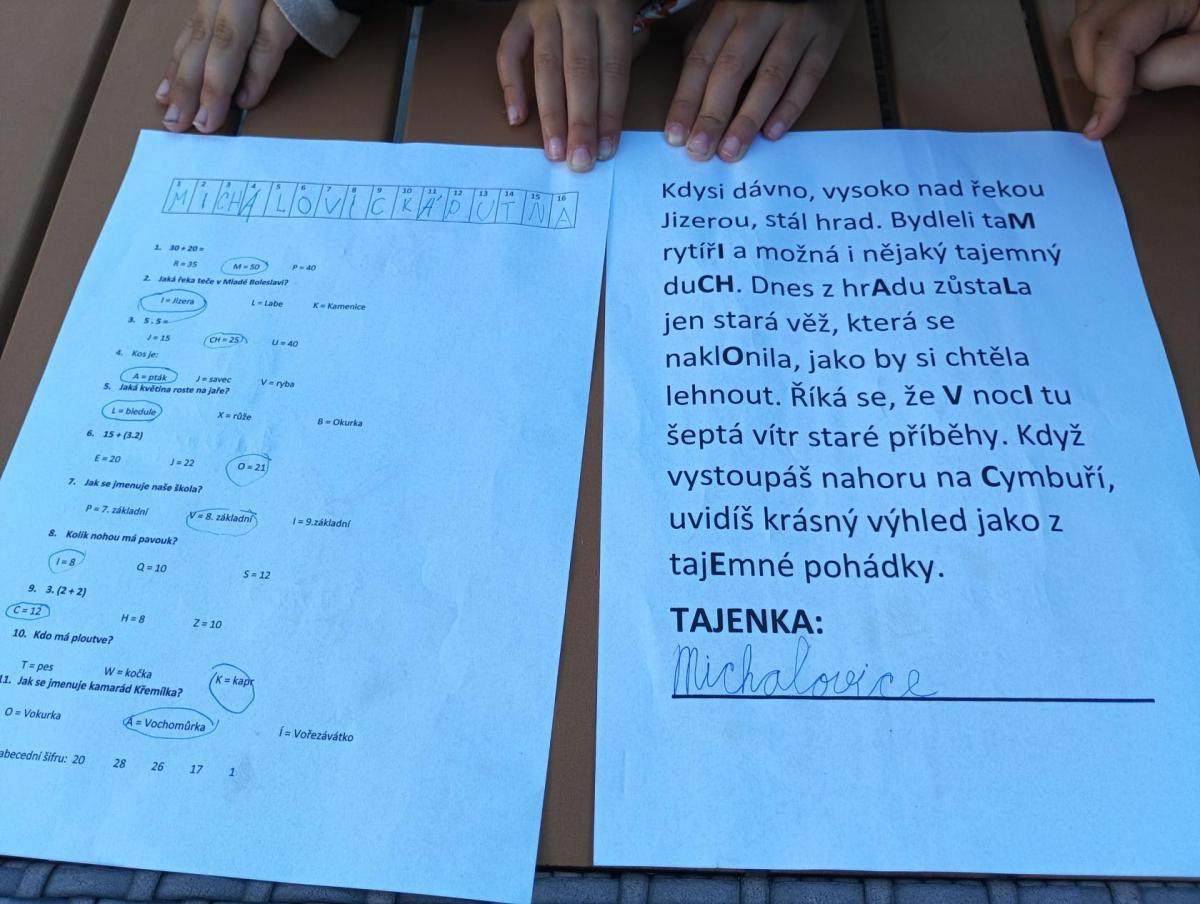 1 2 3 4 5 6 7 8 9 10 11 12 13 14 15 16
M I CH A L O V I C K Á P U T N A
1. 30 + 20 =
R = 35 M = 50 P = 40
2. Jaká řeka teče v Mladé Boleslavi?
I = Jizera L = Labe K = Kamenice
3. 5 . 5 =
J = 15 CH = 25 U = 40
4. Kos je:
A = pták J = savec V = ryba
5. Jaká květina roste na jaře?
L = bledule X = růže B = Okurka
6. 15 + (3.2)
E = 20 J = 22 O = 21
7. Jak se jmenuje naše škola?
P = 7. základní V = 8. základní I = 9.základní
8. Kolik nohou má pavouk?
I = 8 Q = 10 S = 12
9. 3. (2 + 2)
C = 12 H = 8 Z = 10
10. Kdo má ploutve?
T = pes W = kočka K = kapr
11. Jak se jmenuje kamarád Křemílka?
O = Vokurka Á = Vochomůrka Í = Vořezávátko
šifru: 20 28 26 17 1
Kdysi dávno, vysoko nad řekou
Jizerou, stál hrad. Bydleli taM
rytířI a možná i nějaký tajemný
duCH. Dnes z hrAdu zůstaLa
jen stará věž, která se
naklOnila, jako by si chtěla
lehnout. Říká se, že V nocI tu
šeptá vítr staré příběhy. Když
vystoupáš nahoru na Cymbuří,
uvidíš krásný výhled jako z
tajEmné pohádky.
TAJENKA:
Michalovice